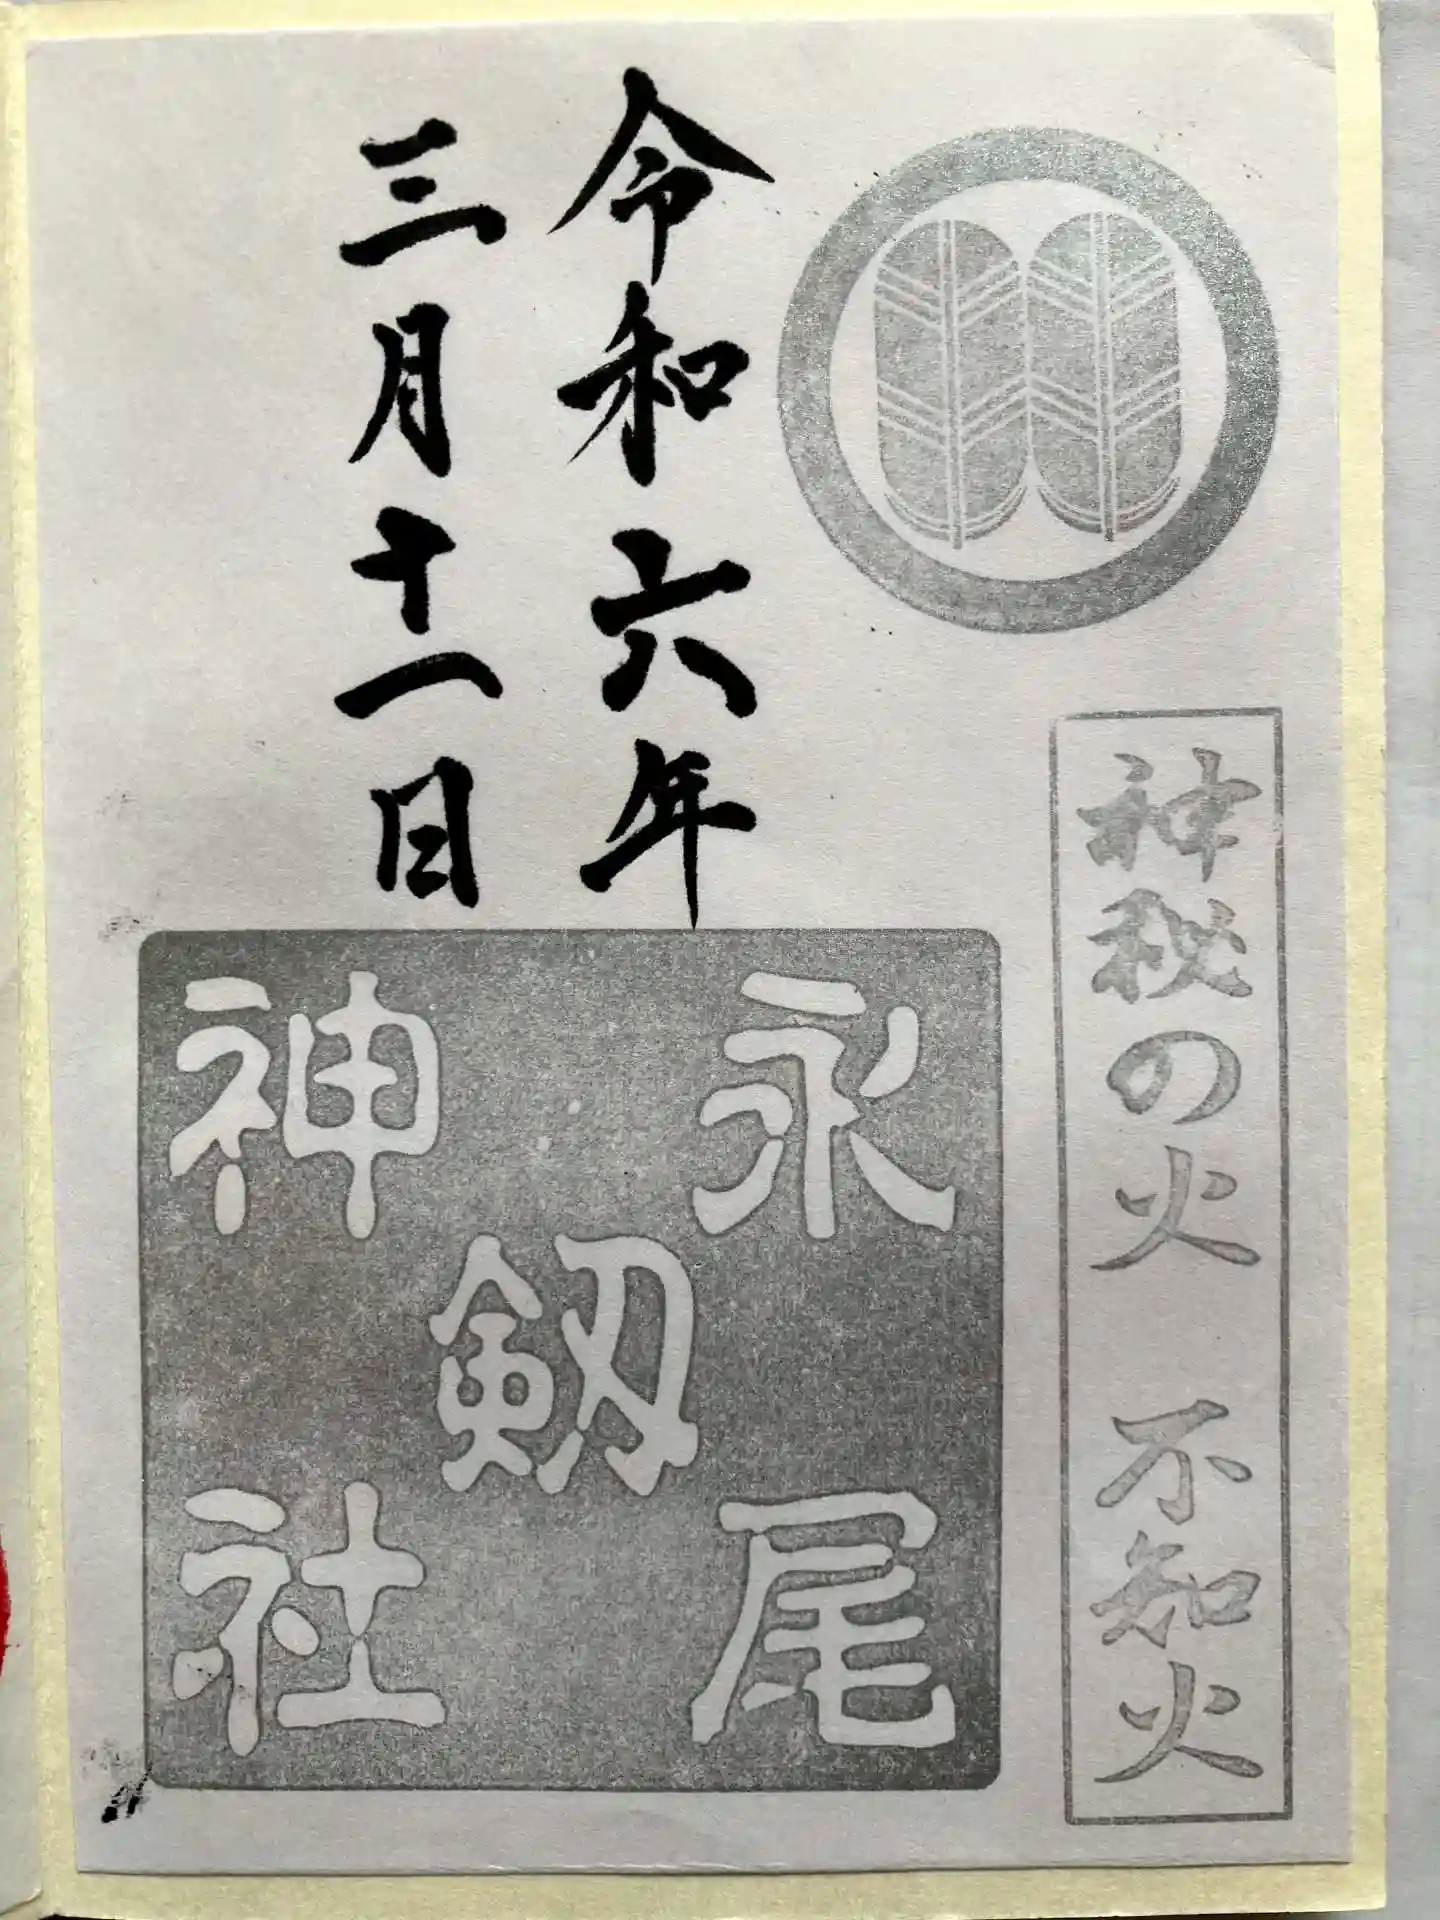 神秘の火　不知火
令和六年
三月十一日
永尾
剱
神社